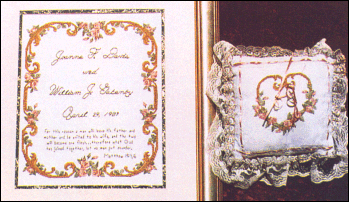 Joanne F. Davis
and
William J.
29, 1989
For this reason a man will leave his father and
mother and be united to his wife, and the two
will become one flesh...therefore what God
has joined together, let no man put asunder.
Matthew 19:5,6